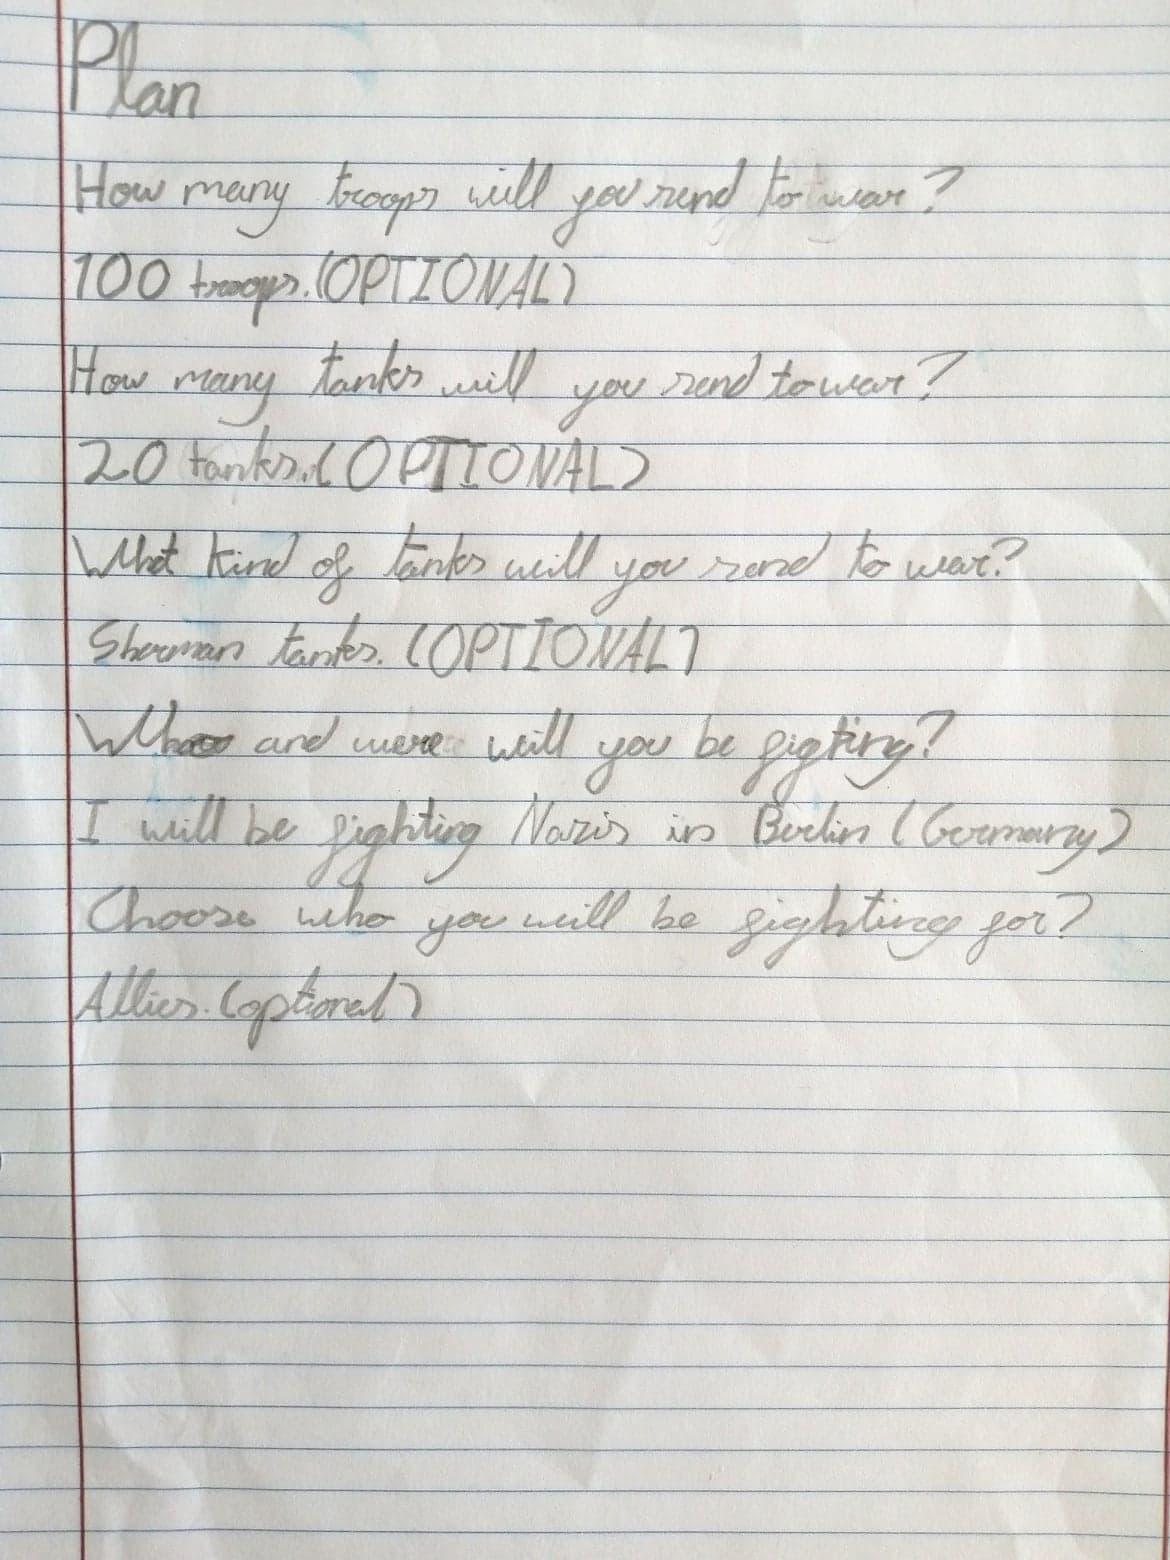 Plan
How many troops will you send to war?
100 troops.(OPTIONAL)
How many tanks will you send to war?
20 tanks.(OPTIONAL)
What kind of tanks will you send to war?
Sherman tanks. (OPTIONAL)
Who and were will you be figting?
I will be fighting Nazis in Berlin (Germany)
Choose who you will be fighting for?
Allies. (optional)